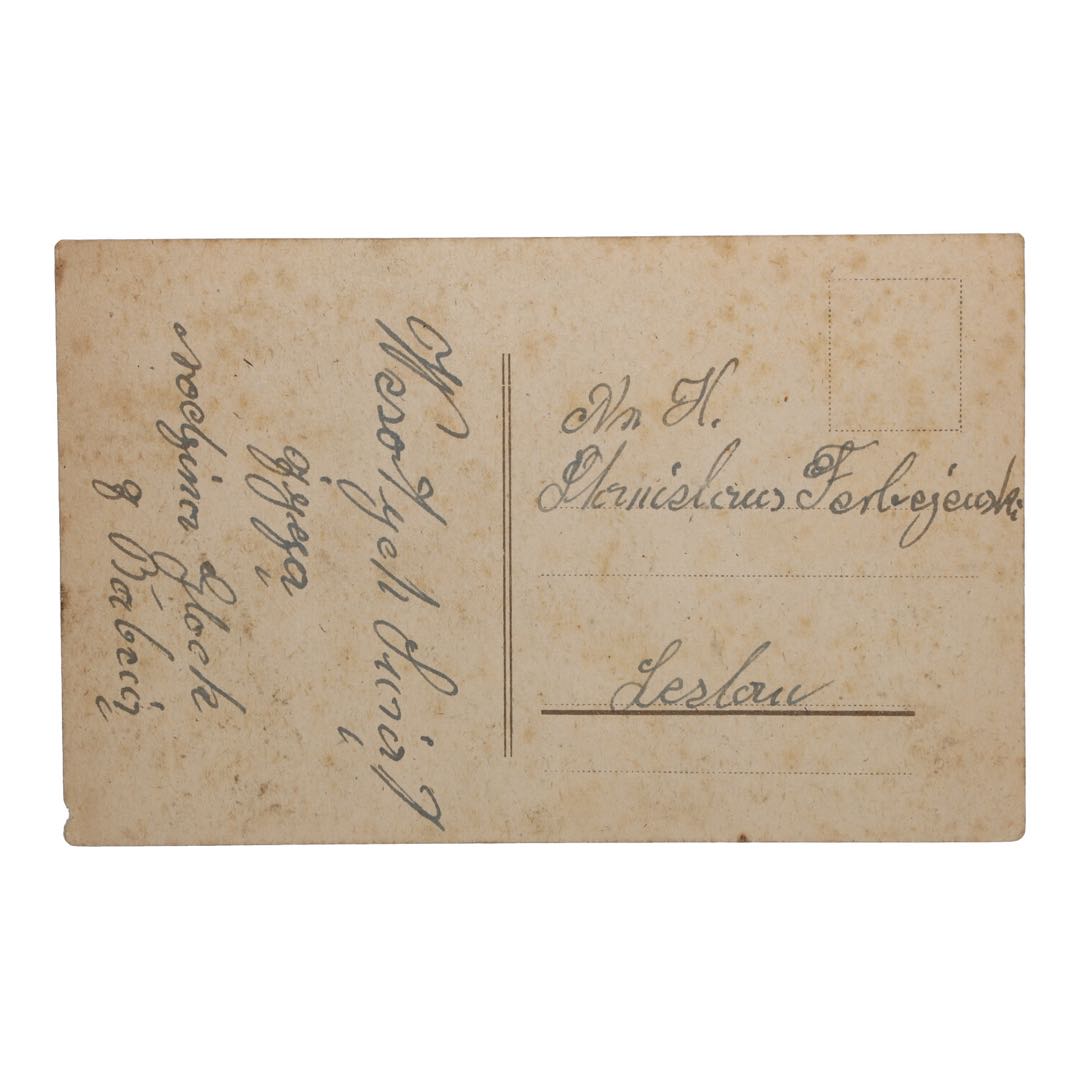 Wesołych Świąt
życzą
rodzina Glock
z Babcią
Stanislaus Ferbejewski
Leslau